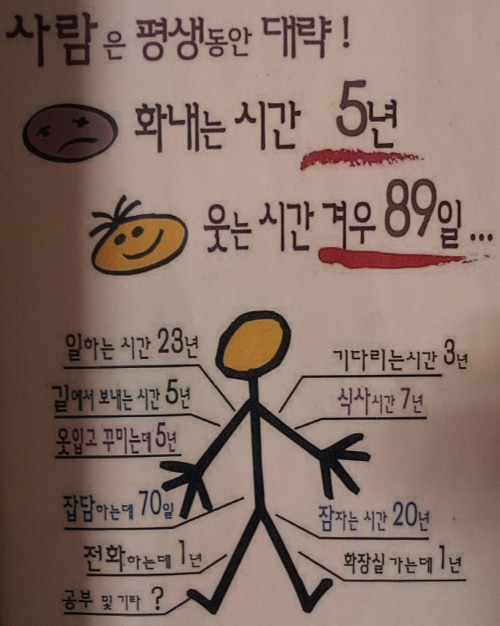 사람은 평생동안 대략!
화내는 시간 5년
웃는 시간 겨우 89일...
일하는 시간 23년
기다리는시간 3년
길에서 보내는 시간 5년
식사시간 7년
옷입고 꾸미는데 5년
잡담하는데 70일
잠자는 시간 20년
전화하는데 1년
화장실 가는데 1년
공부 및 기타 ?